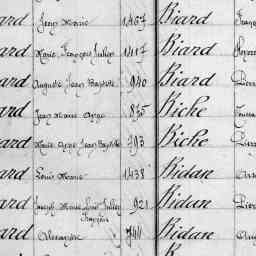 ard Jean Marie 1467 Biard Franç
ard Marie François Julien 1417 Biard
ard Auguste Jean Baptiste 940 Biard Pierr
ard Jean Marie Ange 835 Biche
ard Marie Ange Jean Baptiste 793 Biche Pierr
ard Louis Marie 1438 Bidan
ard Joseph Marie Louis Julien François 921 Bidan Pier
ard Alexandre 744 Bidan